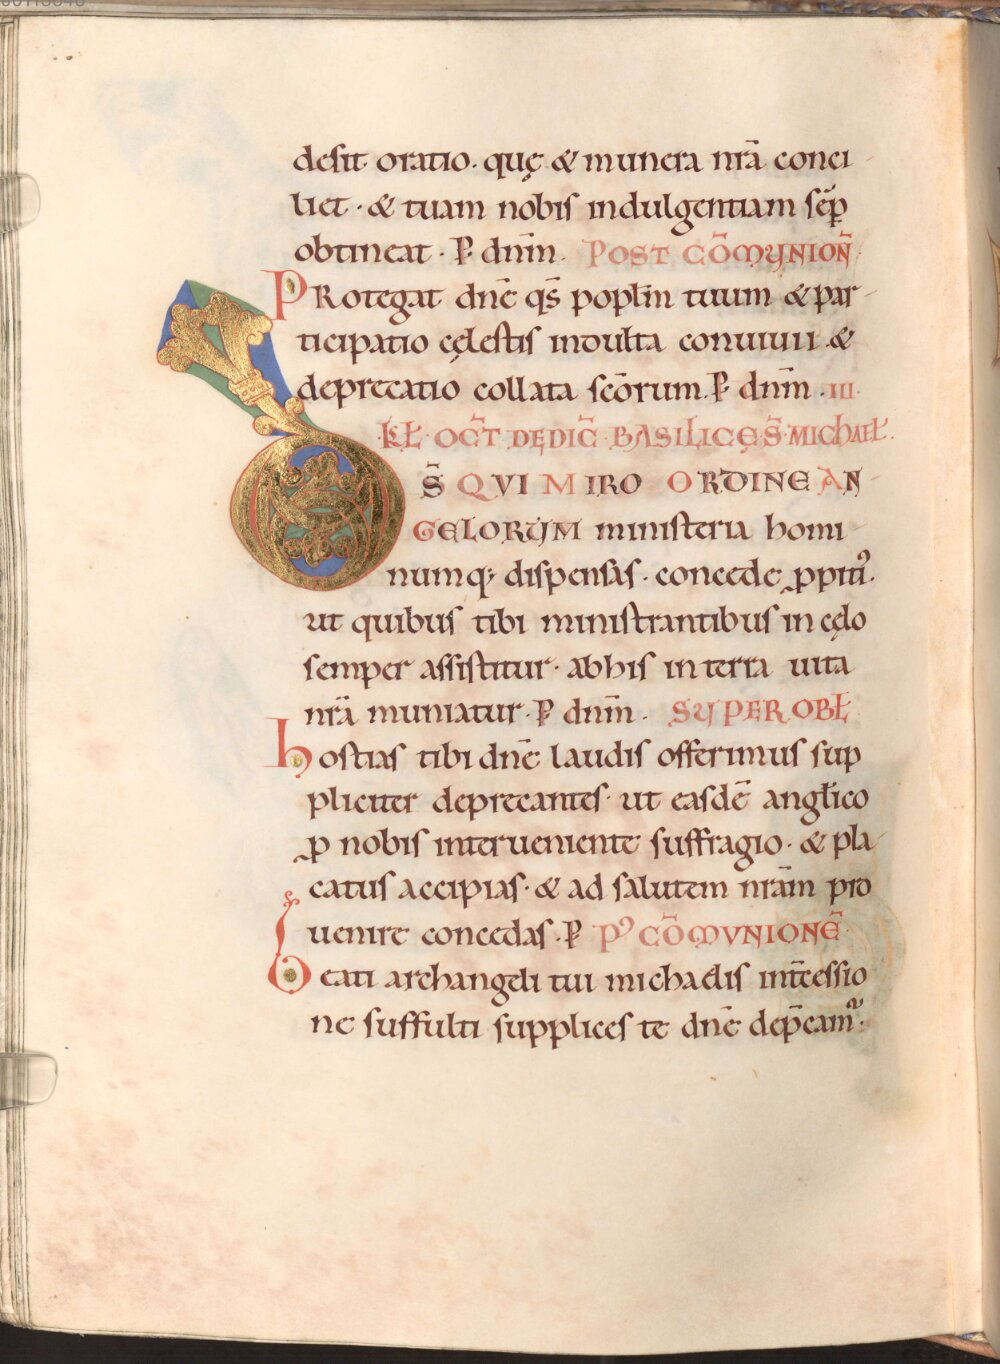 desit oratio. quę & munera nr̄a conci
liet · & tuam nobis indulgentiam sēp
obtineat · P̱ dn̄m. POST CŌMVNION̄
PRotegat dn̄e qs̄ popłm tuum & par
ticipatio cęlestis indulta conuiuii &
deprecatio collata scōrum. P̱ dn̄m. III.
KŁ OCT̄ DEDIC̄ BASILICĘ S̄ MICHAEŁ.
D S̄ QVI MIRO ORDINE AN
GELORVM ministeria homi
numq; dispensas · concede ꝓpiti᾿.
ut quibus tibi ministrantibus in cęlo
semper assistitur · ab his in terra uita
nr̄a muniatur · P̱ dn̄m. SVPER OBŁ
hostias tibi dn̄e laudis offerimus sup
pliciter deprecantes · ut easdē angłico
ꝓ nobis interueniente suffragio · & pla
catus accipias · & ad salutem nr̄am pro
uenire concedas. P̱ P᾿ CŌMVNIONĒ
beati archangeli tui michaelis int̄cessio
ne suffulti supplices te dn̄e dep̄cam᷑.